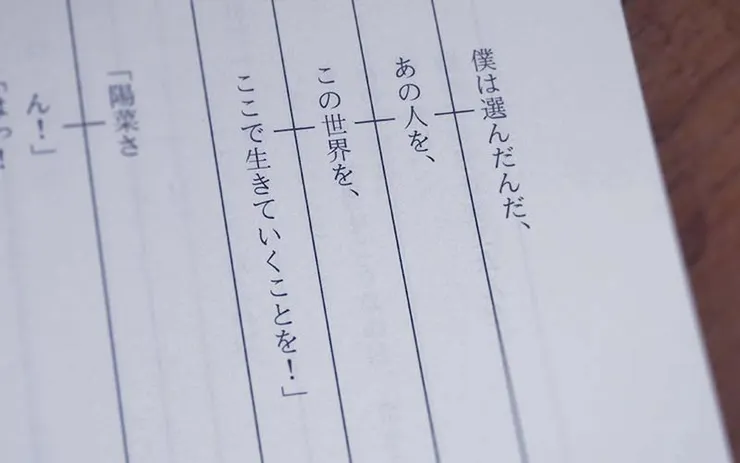 僕は選んだんだ、
あの人を、
この世界を、
ここで生きていくことを！」
「陽菜さ
ん！」